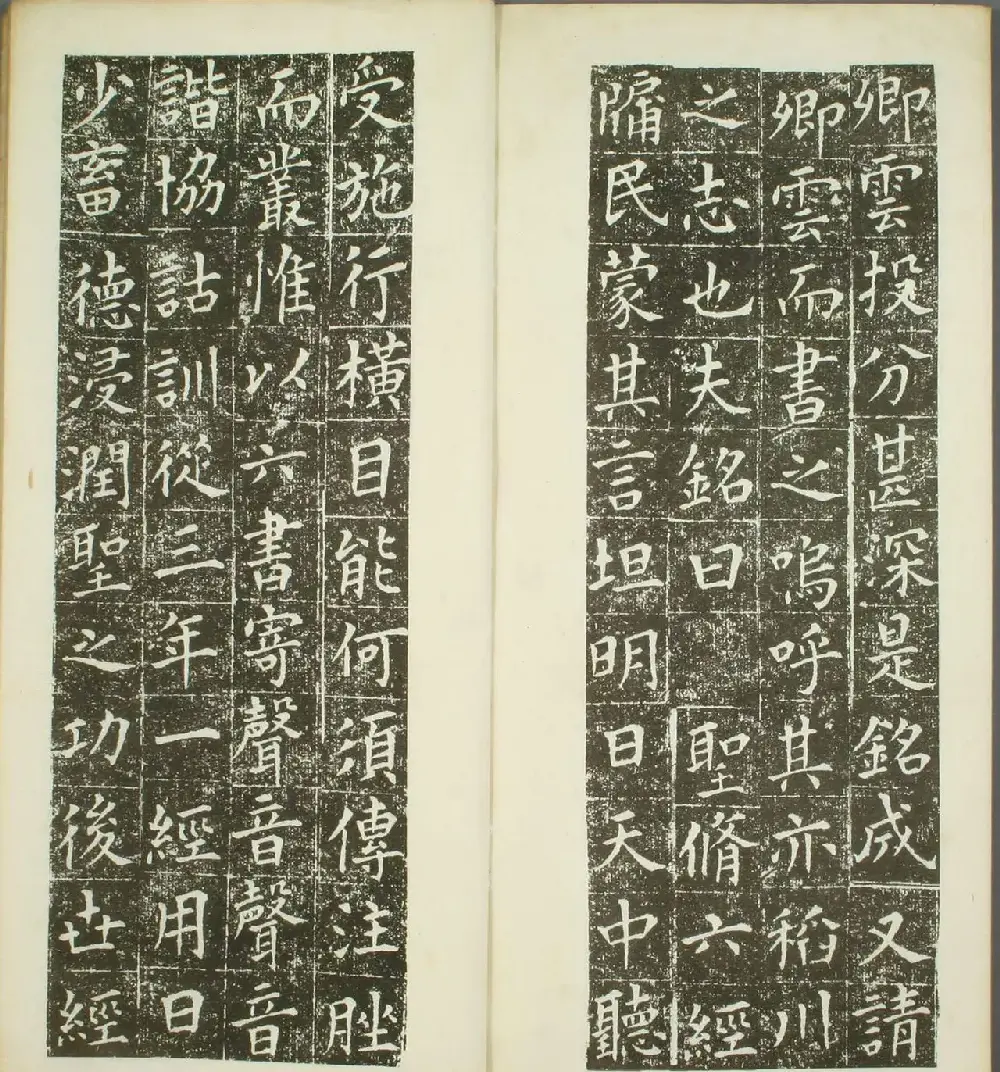 卿雲投分甚深是銘成又請
卿雲而書之嗚呼其亦稻川
之志也夫銘曰 聖脩六經
牖民蒙其言坦明日天中聽
受施行橫目能何須傳注脞
而叢惟以六書寄聲音聲音
諧協詁訓從三年一經用日
少畜德浸潤聖之功後世經